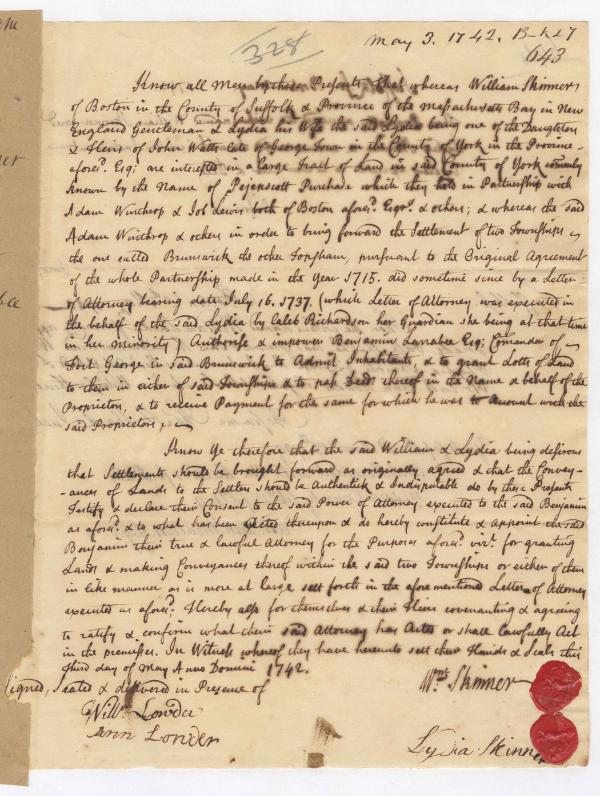 328
May 3. 1742. B-k 27
643
Know all Men by these Presents, that whereas William Skinner
of Boston in the County of Suffolk & Province of the Massachusetts Bay in New
England Gentleman & Lydia his Wife the said Lydia being one of the Daughters
& Heirs of John Watts late of George Town in the County of York in the Province
afores.d Esq; are interested in a large Tract of Land in said County of York comonly
Known by the Name of Pejepscott Purchase which they hold in Partnership with
Adam Winthrop & Job Lewis both of Boston afores.d Esqrs. & others; & whereas the said
Adam Winthrop & others in order to bring forward the Settlement of two Townships
the one called Brunswick the other Topsham, pursuant to the Original Agreement
of the whole Partnership made in the Year 1715. did sometime since by a Letter
of Attorney bearing date July 16. 1737. (which Letter of Attorney was executed in
the behalf of the said Lydia by Caleb Richardson her Guardian she being at that time
in her Minority) Authorise & impower Benjamin Larrabee Esq; Comander of
Fort George in said Brunswick to Admit Inhabitants, & to grant Lotts of Land
to them in either of said Townships & to pass Deeds thereof in the Name & behalf of the
Proprietors, & to receive Payment for the same for which he was to Amount with the
said Proprietors;
Know Ye therefore that the said William & Lydia being desirous
that Settlements should be brought forward as originally agreed & that the Convey-
-ances of Lands to the Settlers should be Authentick & Indisputable do by these Presents
Testify & declare their Consent to the said Power of Attorney executed to the said Benjamin
as afores.d & to what has been Acted thereupon & do hereby constitute & appoint the said
Benjamin their true & lawful Attorney for the Purposes afores.d viz.t for granting
Lands & making Conveyances thereof within the said two Townships or either of them
in like manner as is more at large sett forth in the aforementioned Letter of Attorney
executed as afores.d Hereby also for themselves & their Heirs covenanting & agreeing
to ratify & confirm what their said Attorney has Acted or shall lawfully Act
in the premisses. In Witness whereof they have hereunto sett their Hands & Seals this
third day of May Anno Domini 1742.
Signed, Sealed & delivered in Presence of
Wm. Skinner
Will.m Lowder
Ann Lowder
Lydia Skinner